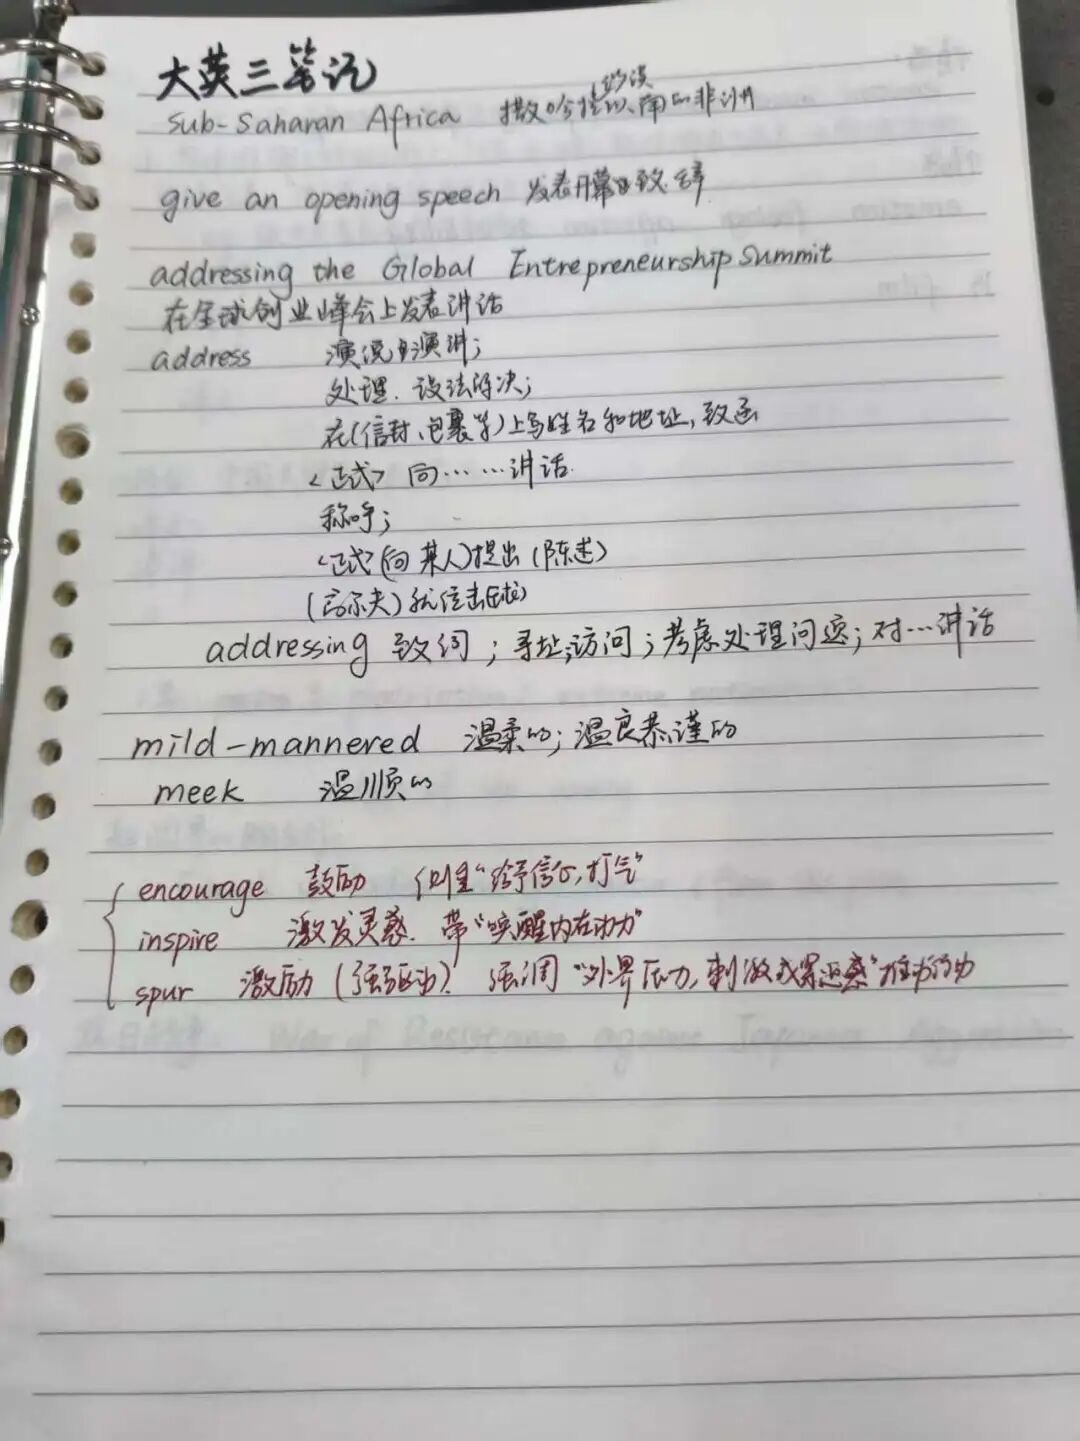 大英三笔记
沙漠
Sub-Saharan Africa 撒哈拉以南的非洲
give an opening speech 发表开幕致辞
addressing the Global Entrepreneurship Summit
在全球创业峰会上发表讲话
address 演说 演讲；
处理、设法解决；
在(信封、包裹等)上写姓名和地址，致函
<正式> 向……讲话
称呼；
<正式>(向某人)提出(陈述)
(高尔夫)就位击球
addressing 致词；寻址；访问；考虑处理问题；对…讲话
mild-mannered 温柔的；温良恭谨的
meek 温顺的
encourage 鼓励 侧重“给予信心，打气”
inspire 激发灵感、带“唤醒内在动力”
spur 激励(强驱动)、强调“外界压力，刺激或紧迫感”推动行动